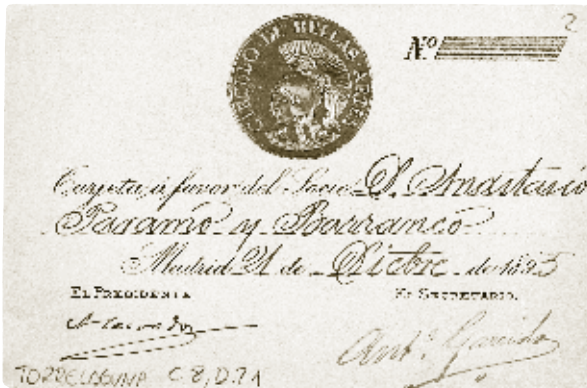 2
CÍRCULO DE BELLAS ARTES
Nº
Tarjeta á favor del Socio D. Anastasio
Páramo y Barranco
Madrid 21 de Dictre de 1895
EL PRESIDENTE
EL SECRETARIO.
Antº
TORRELAGUNA C. 8, D. 71